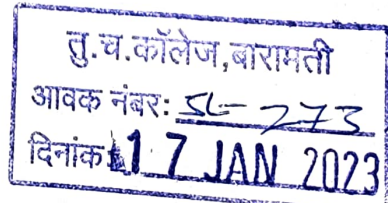 तु.च.कॉलेज,बारामती
आवक नंबर: SL-273
दिनांक 17 JAN 2023